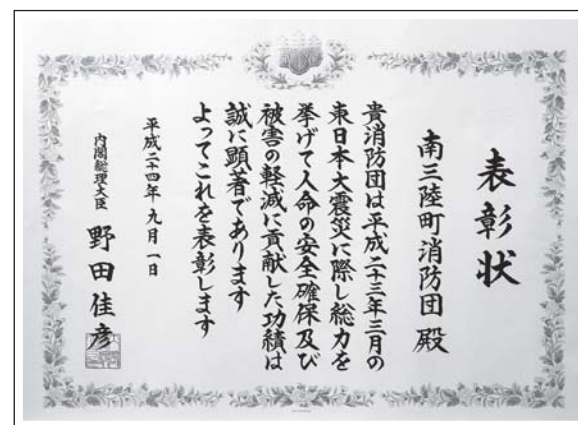 表彰状
南三陸町消防団 殿
貴消防団は平成二十三年三月の
東日本大震災に際し総力を
挙げて人命の安全確保及び
被害の軽減に貢献した功績は
誠に顕著であります
よってこれを表彰します
平成二十四年九月一日
内閣総理大臣 野田佳彦